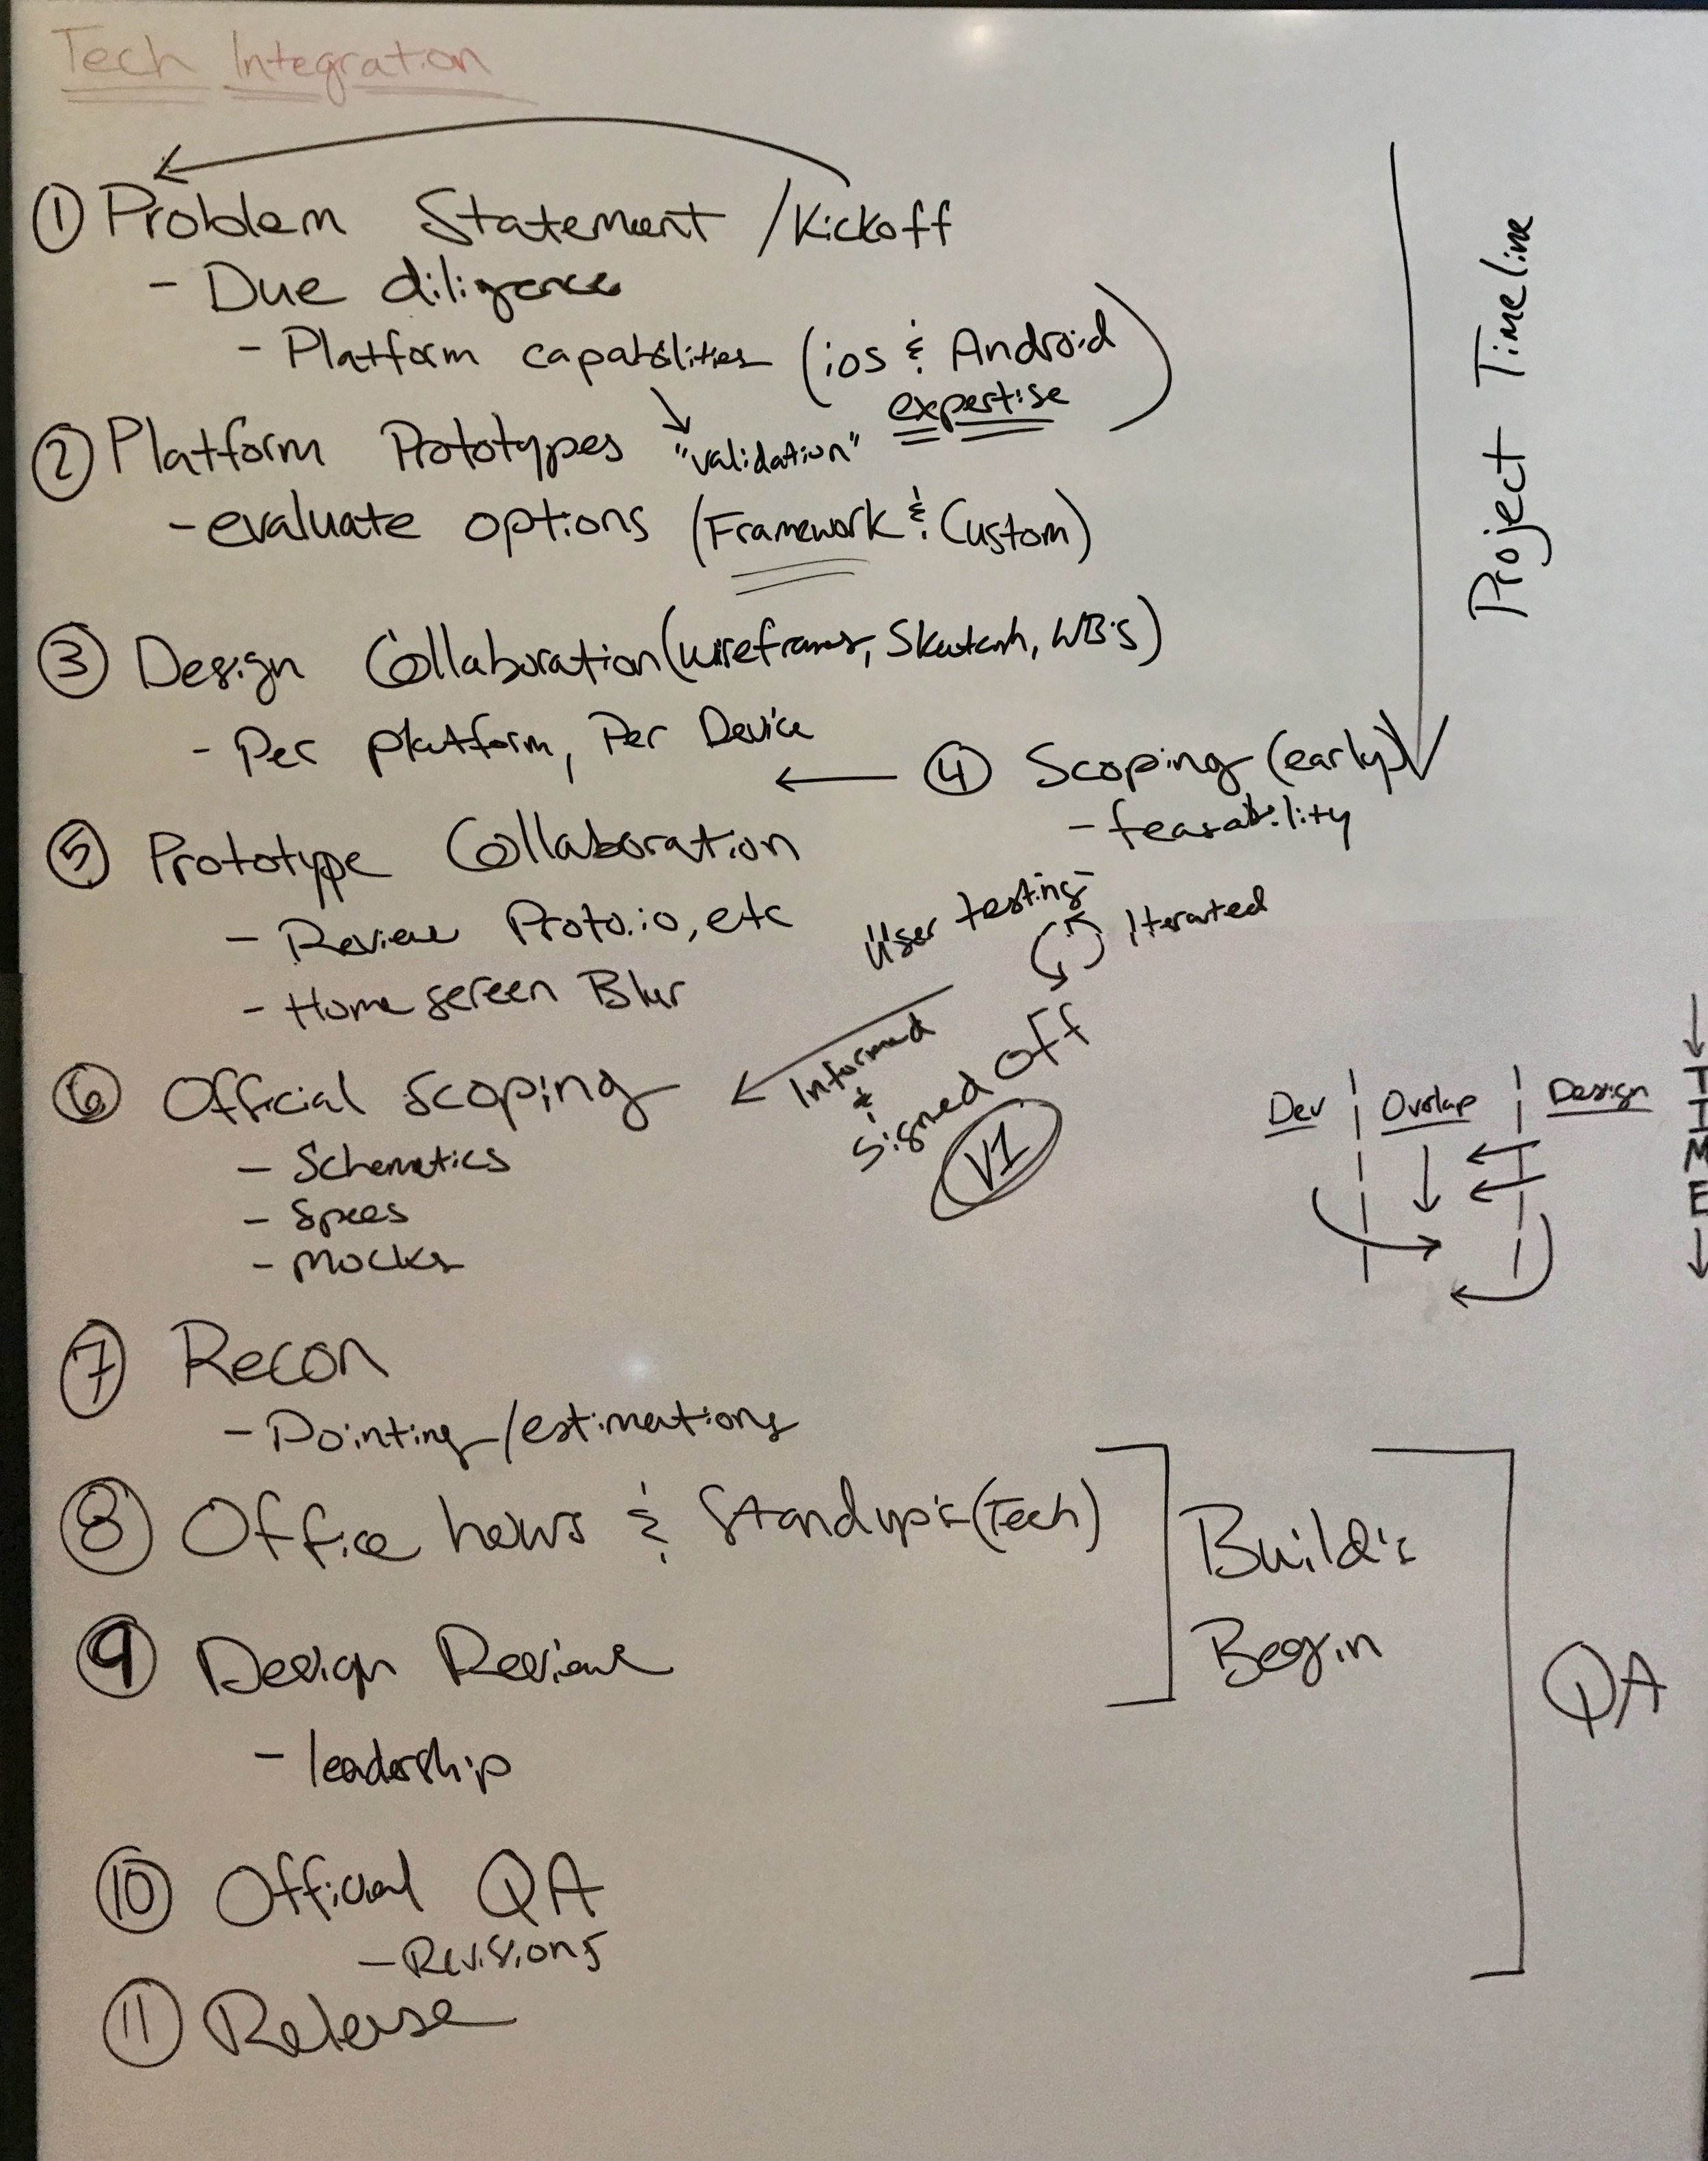 Tech Integration
① Problem Statement / Kickoff
- Due diligence
- Platform capabilities (ios & Android
expertise)
② Platform Prototypes "validation"
- evaluate options (Framework & Custom)
③ Design Collaboration (wireframes, Skectch, WB's)
- Per platform, Per Device
④ Scoping (early)
- feasability
⑤ Prototype Collaboration
- Review Proto.io, etc
- Home screen Blur
User testing
Iterated
Informed
&
Signed off
V1
⑥ Official Scoping
- Schematics
- Specs
- Mocks
⑦ Recon
- Pointing/estimations
⑧ Office hours & Standup's (Tech)
⑨ Design Review
- leadership
⑩ Official QA
- Revisions
⑪ Release
Project Timeline
Dev Overlap Design
TIME
Build's
Begin
QA